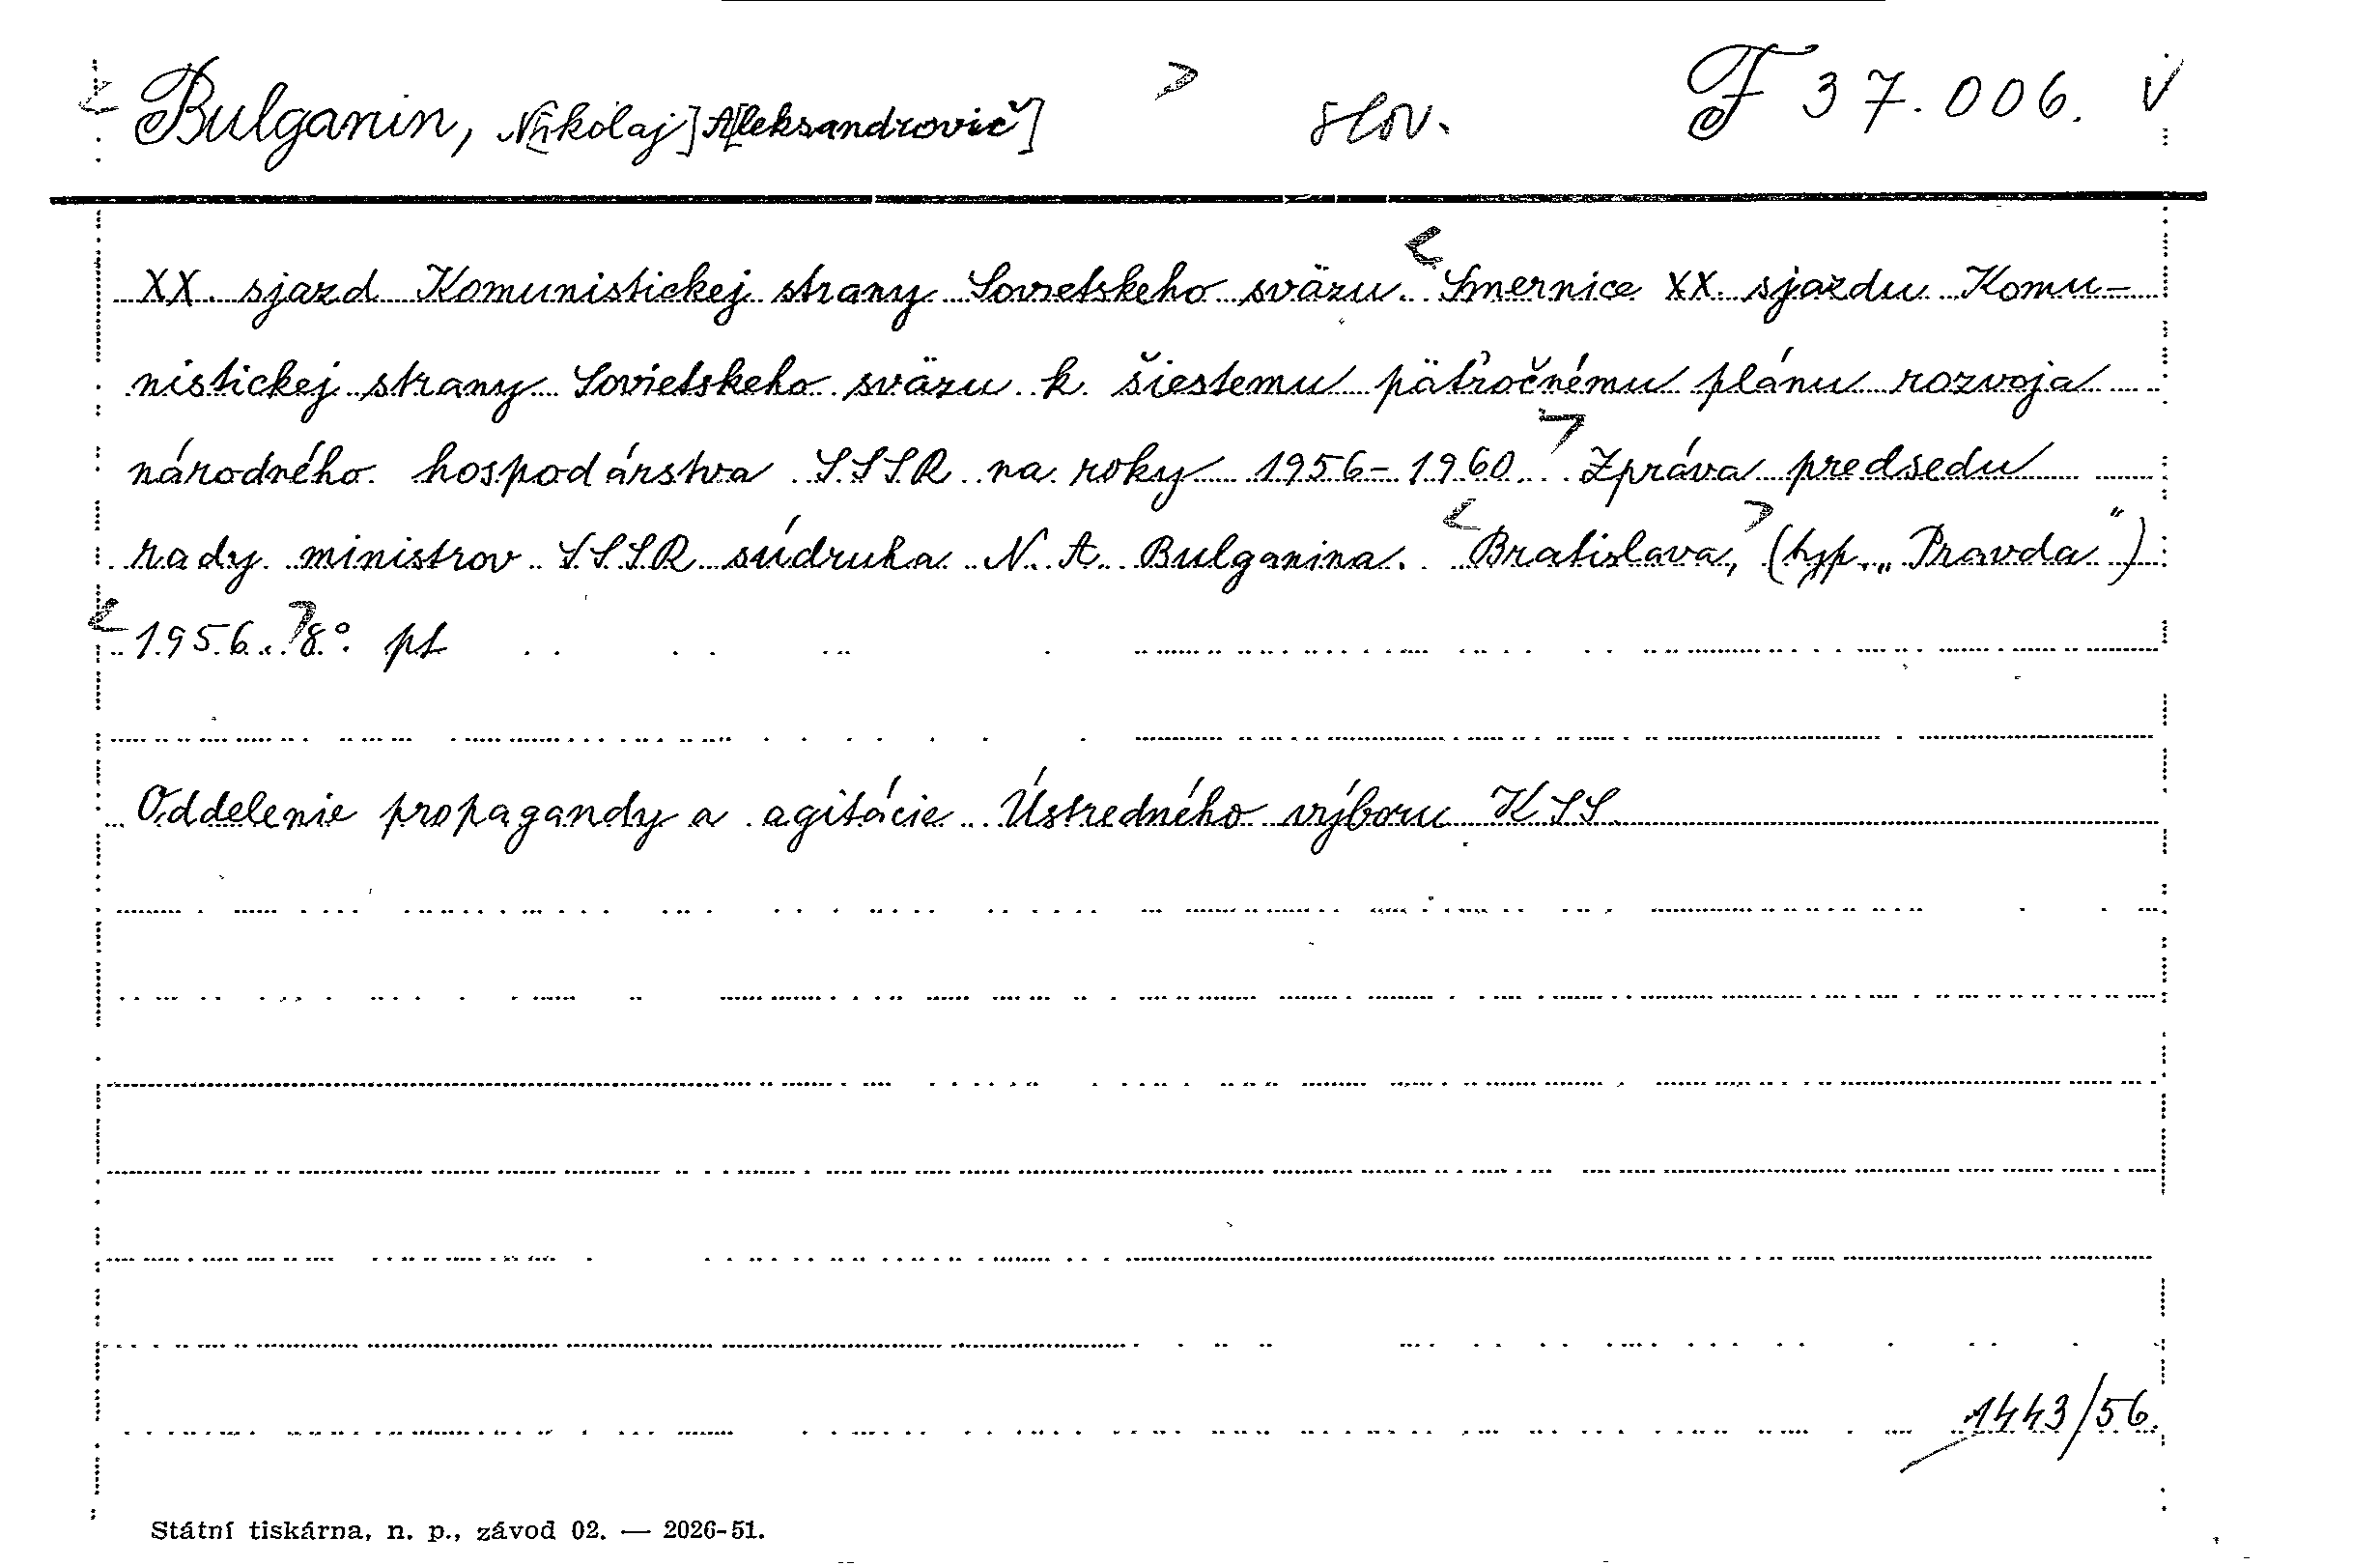 Bulganin, N[ikolaj] A[leksandrovič] slov. F 37.006. V
XX. sjazd Komunistickej strany Sovietskeho sväzu. Smernice XX. sjazdu Komu-
nistickej strany Sovietskeho sväzu k šiestemu päťročnému plánu rozvoja
národného hospodárstva SSSR na roky 1956-1960. Zpráva predsedu
rady ministrov SSSR súdruha N. A. Bulganina. Bratislava, (typ. „Pravda")
1956. 8°. pt
Oddelenie propagandy a agitácie Ústredného výboru KSS.
1443/56.
Státní tiskárna, n. p., závod 02. — 2026-51.